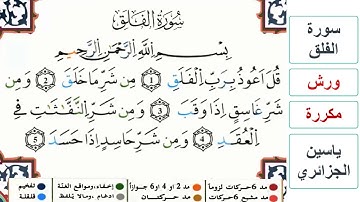 سُورَةُ الفَلَقِ
بِسْمِ اللَّهِ الرَّحْمَٰنِ الرَّحِيمِ
قُلَ اَعُوذُ بِرَبِّ اِلْفَلَقِ 1 مِن شَرِّ مَا خَلَقَ 2 وَمِن
شَرِّ غَاسِقٍ اِذَا وَقَبَ 3 وَمِن شَرِّ اِلنَّفَّٰثَٰتِ فِے
اِلْعُقَدِ 4 وَمِن شَرِّ حَاسِدٍ اِذَا حَسَدَ 5
مد 6 حركات لزوما
مد 2 او 4 او 6 جوازاً
إخفاء، ومواقع الغنة
تفخيم
مد مشبع 6 حركات
مد حركتان
ادغام، ومالا يلفظ
قلقلة
سورة
الفلق
ورش
مكررة
ياسين
الجزائري